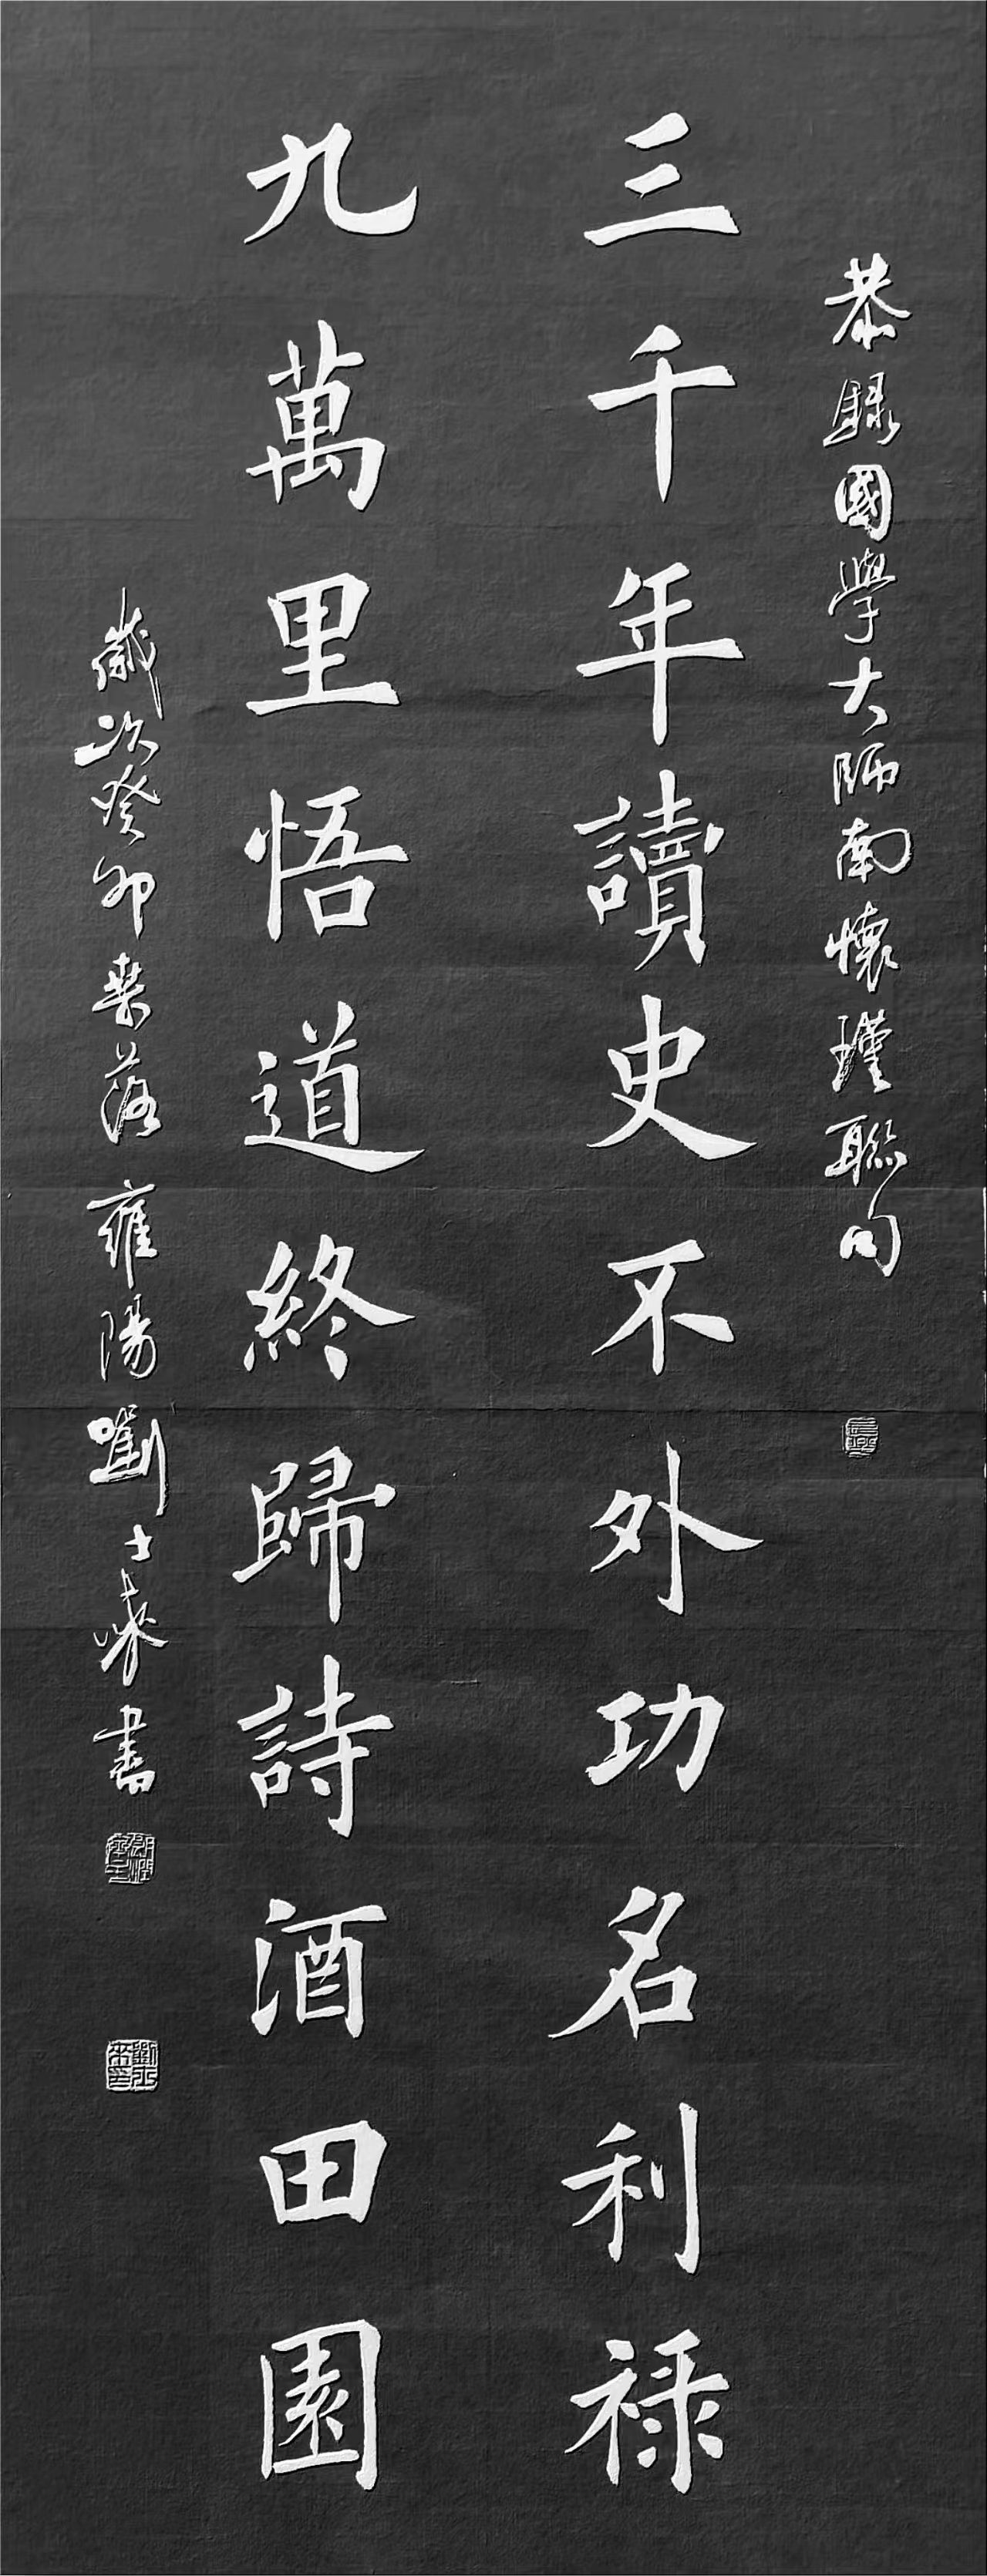 恭録國學大師南懷瑾聯句
三千年讀史不外功名利禄
九萬里悟道終歸詩酒田園
歲次癸卯葉落雍陽劉士來書